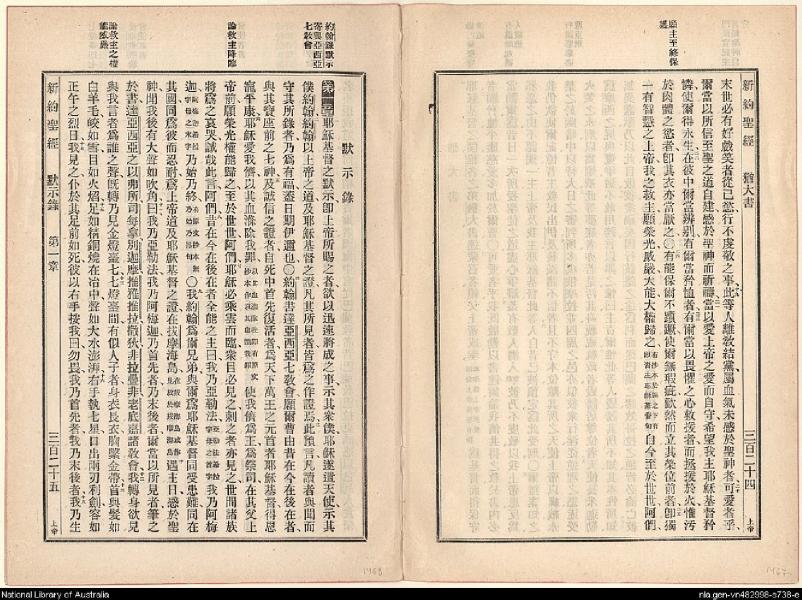 新約聖經　猶大書
三百二十四
上帝
末世必有好戲笑者從己慾行不虔敬之事此等人離教結黨屬血氣未感於聖神者可愛者乎
爾當以所信至聖之道自建感於聖神而祈禱當以愛上帝之愛而自守希望我主耶穌基督矜
憐使爾得永生在彼中爾當辨別有爾當矜恤者有爾當以畏懼之心救援者而拯援於火惟污
於肉體之慾者卽其衣亦當厭之〇有能保爾不躓蹶使爾無瑕疵歡然而立其榮位前者卽獨
一有智慧之上帝我之救主願榮光威嚴大能大權歸之自今至於世世阿們
願主至終保
新約聖經　默示錄　第一章
三百二十五
上帝
約翰錄默示
寄與亞西亞
七教會
論救主降臨
論救主之權
能威嚴
默示錄
第一章耶穌基督之默示卽上帝所賜之者欲以迅速將成之事示其衆僕耶穌遂遣天使示其
僕約翰約翰以上帝之道及耶穌基督之證凡其所見者皆爲之作證焉此預言凡讀者與聞而
守其所錄者乃爲有福蓋日期伊邇也〇約翰書達亞西亞七教會願爾曹由昔在今在後在者
與其寶座前之七神及誠信之證者自死中首先復活者爲天下萬王之元首者耶穌基督得恩
寵平康耶穌愛我儕以其血滌除我罪使我儕爲王爲祭司在其父上
帝前願榮光權能歸之至於世世阿們耶穌必乘雲而臨衆目必見之刺之者亦見之世間諸族
將爲之哀哭誠哉此言阿們昔在今在後在者全能之主曰我乃亞勒法我乃阿梅
迦乃始乃終〇我約翰爲爾兄弟與爾爲耶穌基督同受患難同在
其國同爲彼而忍耐爲上帝道及耶穌基督之證在拔摩海島遇主日感於聖
神聞我後有大聲如吹角曰我乃亞勒法我乃阿梅迦乃首先者乃末後者爾當以所見者筆之
於書達亞西亞之以弗所司每拿別迦摩推雅推拉撒狄非拉鐵非老底嘉諸教會我轉身欲見
與我言者爲誰之聲旣轉乃見金燈臺七七燈臺間有似人子者身衣長衣胸繫金帶首與髮如
白羊毛皎如雪目如火焰足如精銅燒在冶中聲如大水澎湃右手執七星口出兩刃利劍容如
正午之烈日我見之仆於其足前如死彼以右手按我曰勿畏我乃首先者我乃末後者我乃生
1468
1467
National Library of Australia
nla.gen-vn482998-s738-e